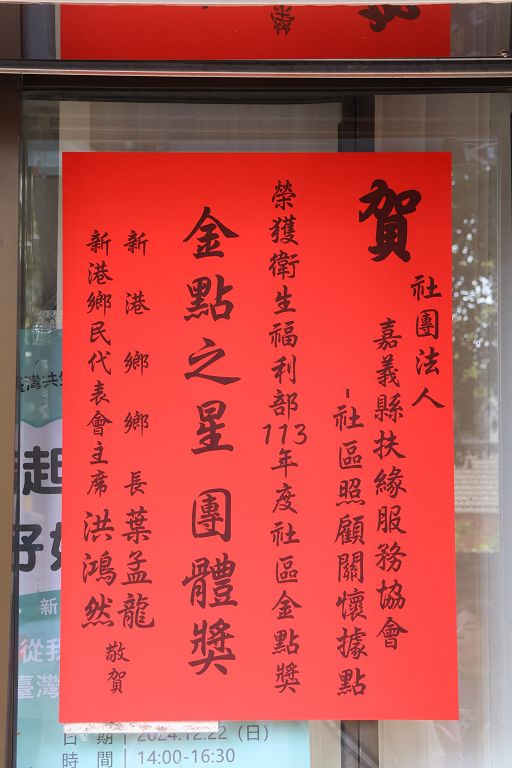 賀
社團法人
嘉義縣扶緣服務協會
-社區照顧關懷據點
榮獲衛生福利部113年度社區金點獎
金點之星 團體獎
新港鄉鄉長葉孟龍
新港鄉民代表會主席洪鴻然
敬賀
臺灣洪
起
好
新
從我
臺灣
日期 2024.12.22(日)
時間 14:00-16:30